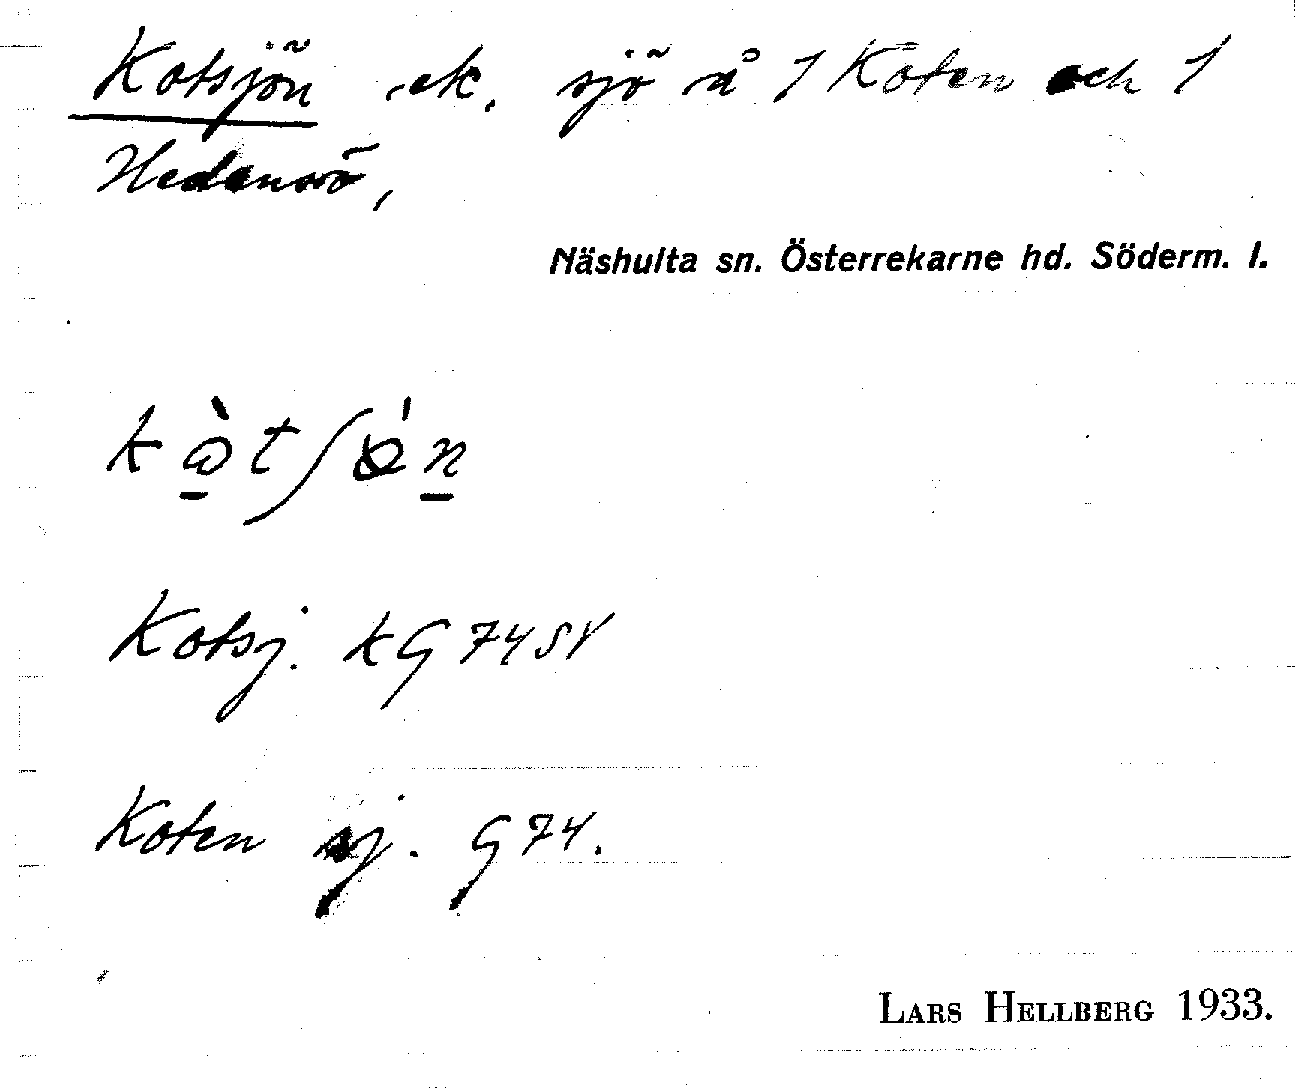 Kotsjön ek. sjö å 1 Koten och 1
Hedensö,
Näshulta sn. Österrekarne hd. Söderm. l.
Kotsj. kG 74 SV
Koten sj. G 74.
LARS HELLBERG 1933.